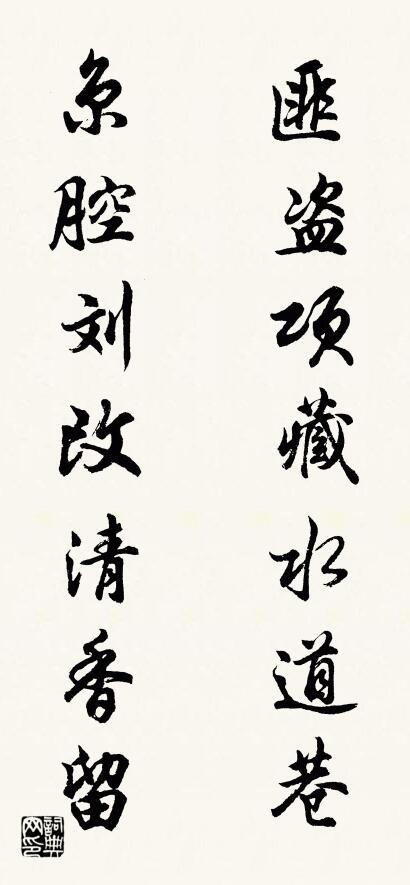 匪盗项藏水道巷
京腔刘改清香留
词典网印